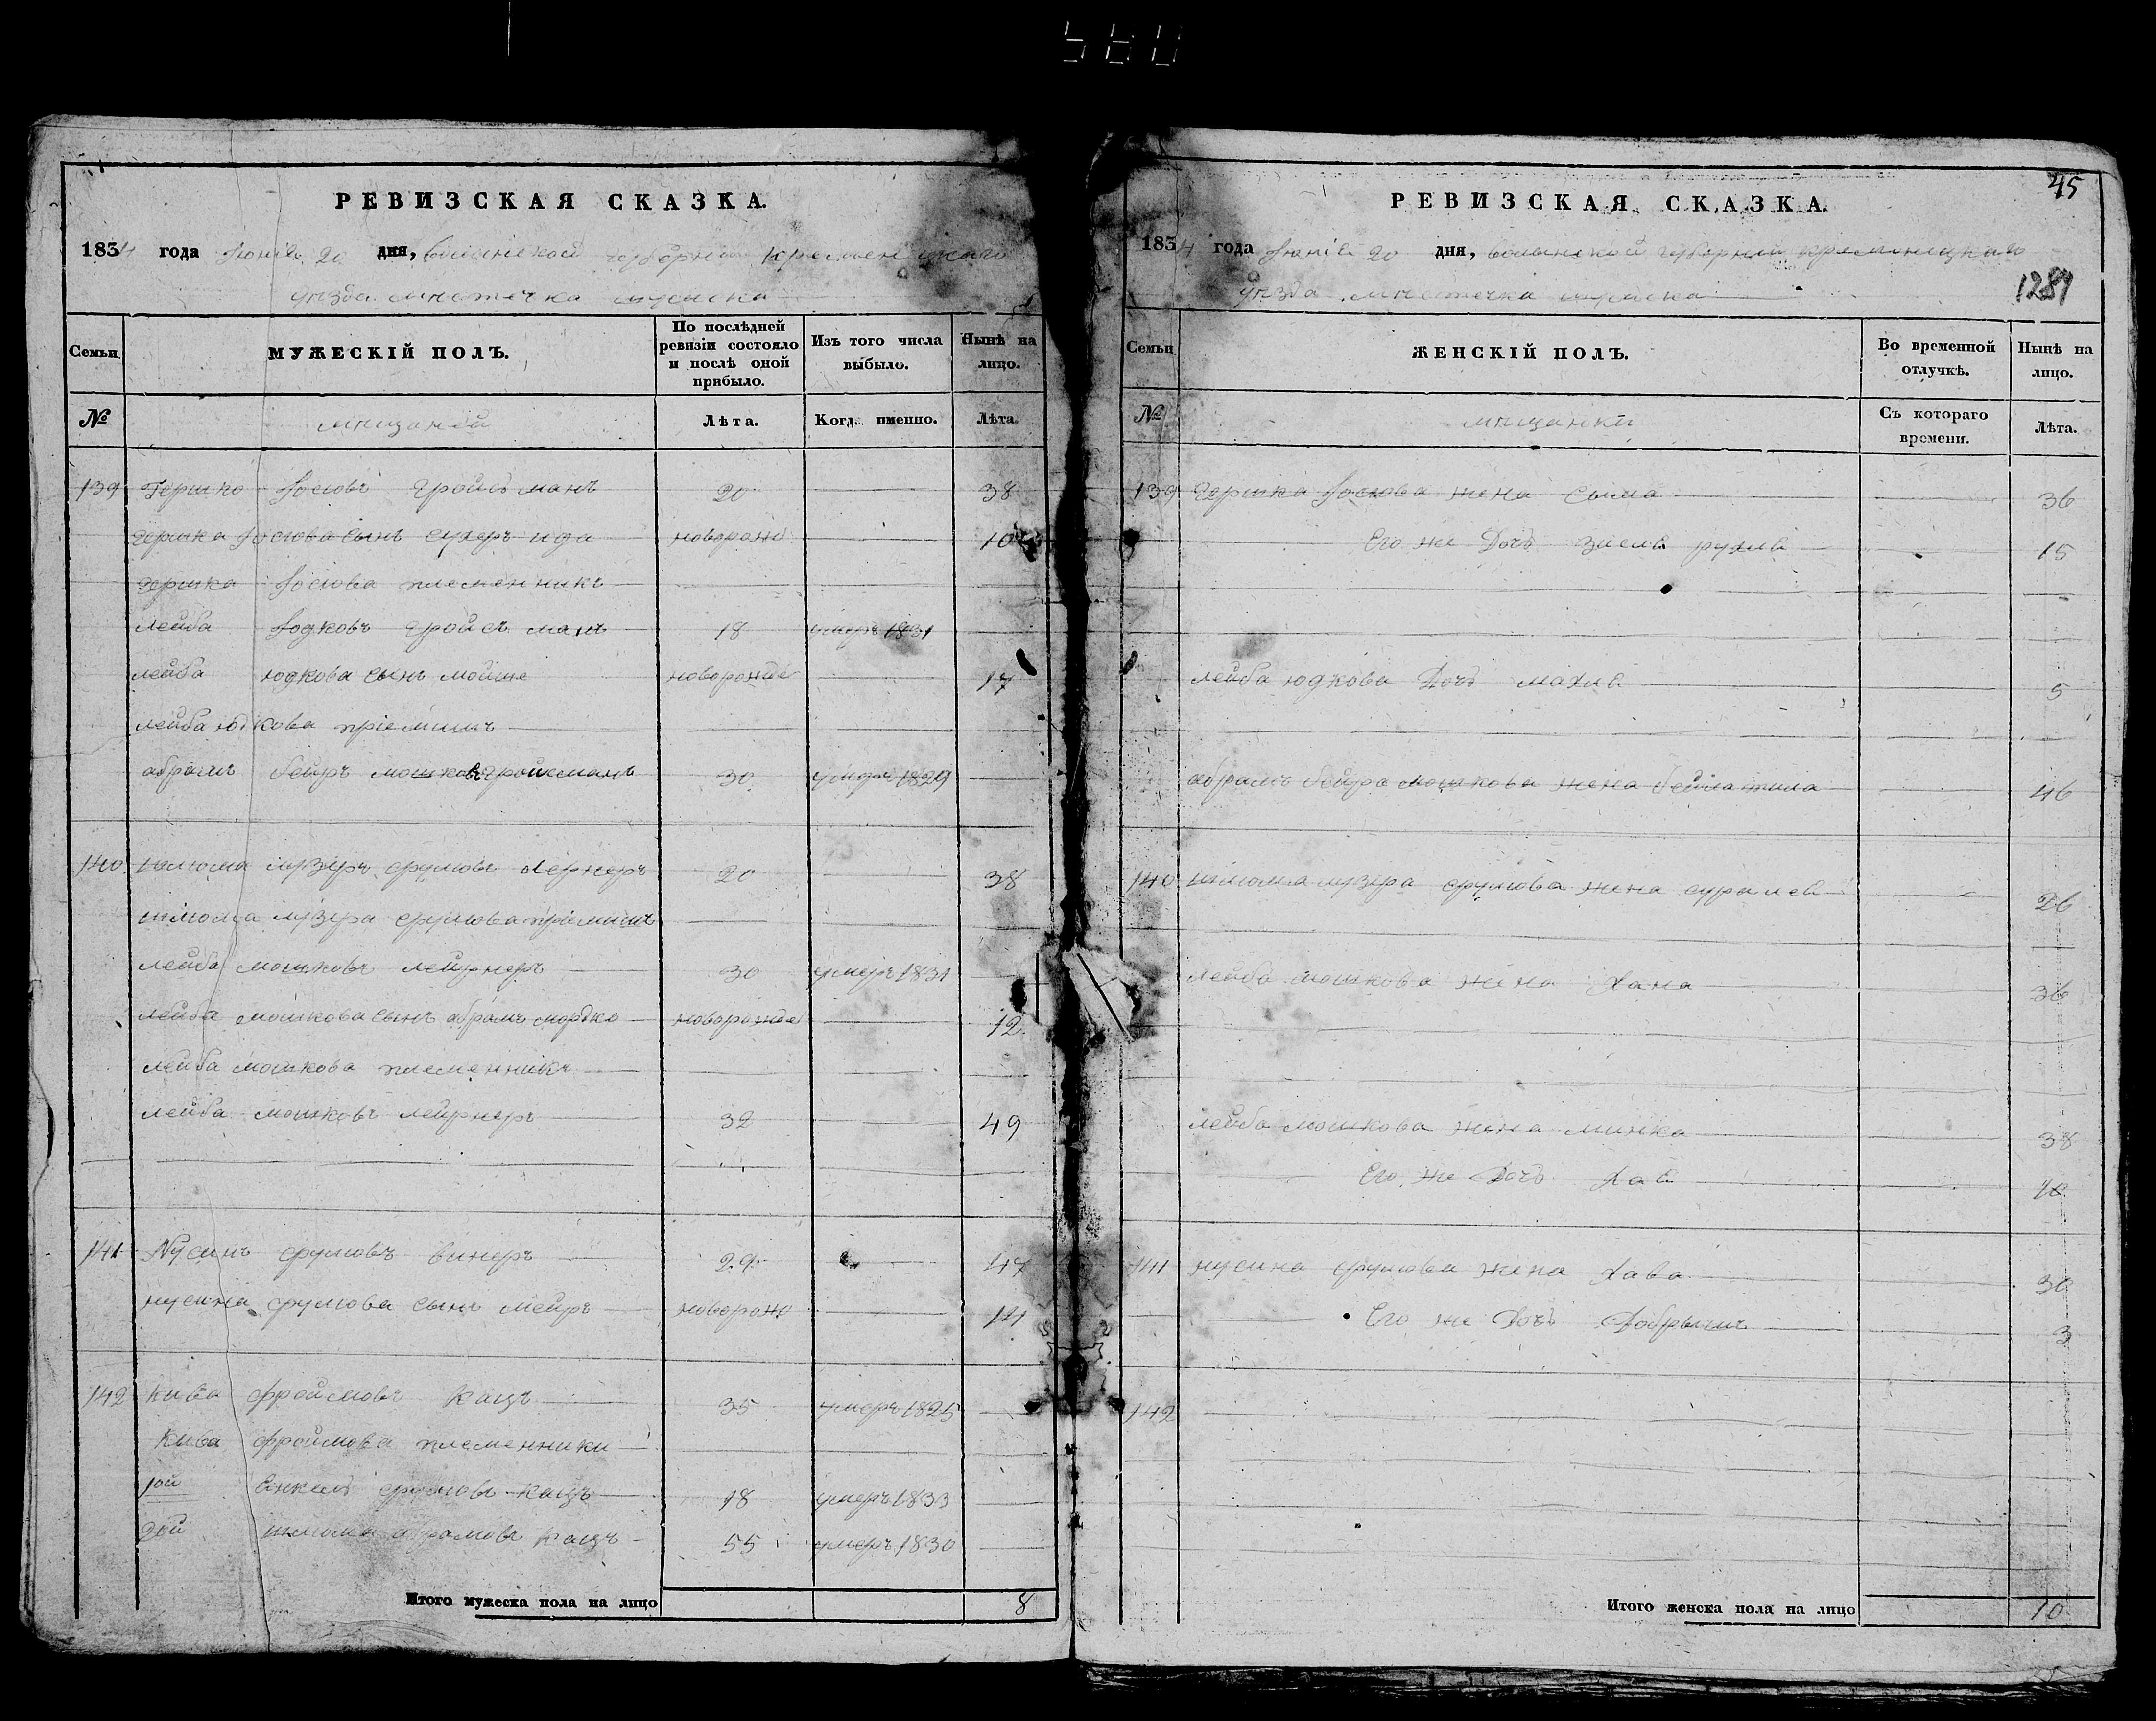 РЕВИЗСКАЯ СКАЗКА.
1834 года Іюнія 20 дня, волынской губерніи кременецкаго
уѣзда мѣстечка
Семьи МУЖЕСКІЙ ПОЛЪ. По послѣдней ревизіи состояло и послѣ оной прибыло. Изъ того числа выбыло. Нынѣ на лицо.
№ мѣщаней Лѣта. Когда именно. Лѣта.
139 Гершко Іосіовъ Гройсъманъ 20 38
гершка Іосіова сынъ сухеръ ида новорожд 10
гершка Іосіова племенникъ
лейба Іодковъ гройсъманъ 18 умеръ 1831
лейба юдкова сынъ мойше новорожде 17
лейба юдкова пріемишъ
абрамъ бейръ мошковъ гройсманъ 30 умеръ 1829
140 шлиома лузеръ срулювъ лернеръ 20 38
шліома лузера срулюва пріемишъ
лейба мошковъ лейрнеръ 30 умеръ 1831
лейба мошкова сынъ абрамъ мордко новорожде 12
лейба мошкова племенникъ
лейба мошковъ лейрнеръ 32 49
141 Нусинъ срулювъ винеръ 29 47
нусина срулюва сынъ мейръ новорожд 14
142 кива фроймовъ кацъ 35 умеръ 1825
кива фроймова племенники
1ой срулювъ кацъ 18 умеръ 1833
2ой шлиома абрамовъ кацъ 55 умеръ 1830
Итого мужеска пола на лицо 8
45
РЕВИЗСКАЯ СКАЗКА.
1834 года Іюнія 20 дня, волынской губерніи кременецкаго
уѣзда мѣстечка
1289
Семьи ЖЕНСКІЙ ПОЛЪ. Во временной отлучкѣ. Нынѣ на лицо.
№ мѣщанки Съ котораго времени. Лѣта.
139 Гершка Іосіова жена сыма 36
Его же Дочь рухля 15
лейба юдкова Дочь махля 5
абрамъ бейра мошкова жена бейла 46
140 шлиома лузера срулюва жена сура лея 26
лейба мошкова жена Хана 36
лейба мошкова жена минка 38
Его же Дочь Хая
141 нусина срулюва жена Хава 30
Его же Дочь Добрышъ 3
142
Итого женска пола на лицо 10